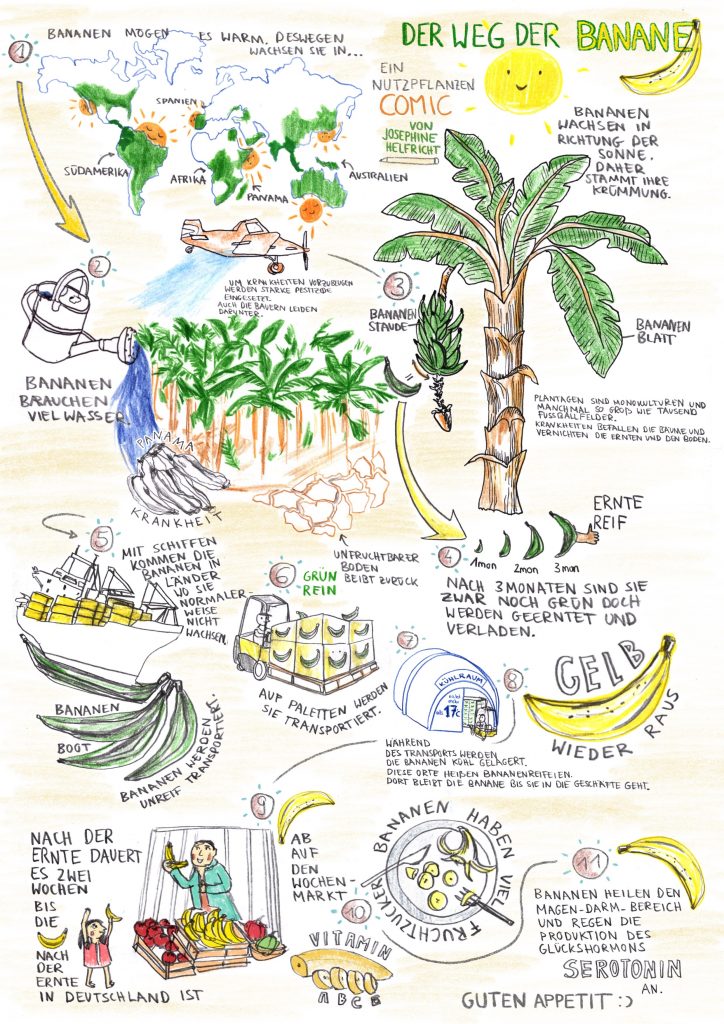 DER WEG DER BANANE
EIN
NUTZPFLANZEN
COMIC
VON
JOSEPHINE
HELFRICHT
1
BANANEN MÖGEN ES WARM, DESWEGEN
WACHSEN SIE IN...
SPANIEN
SÜDAMERIKA
AFRIKA
PANAMA
AUSTRALIEN
BANANEN
WACHSEN IN
RICHTUNG DER
SONNE.
DAHER
STAMMT IHRE
KRÜMMUNG.
2
BANANEN
BRAUCHEN
VIEL WASSER
UM KRANKHEITEN VORZUBEUGEN
WERDEN STARKE PESTIZIDE
EINGESETZT.
AUCH DIE BAUERN LEIDEN
DARUNTER.
PANAMA
KRANKHEIT
UNFRUCHTBARER
BODEN
BEIBT ZURÜCK
3
BANANEN
STAUDE
=
BANANEN
BLATT
PLANTAGEN SIND MONOKULTUREN UND
MANCHMAL SO GROß WIE TAUSEND
FUSSBALLFELDER.
KRANKHEITEN BEFALLEN DIE BÄUME UND
VERNICHTEN DIE ERNTEN UND DEN BODEN.
ERNTE
REIF
4
1mon 2mon 3mon
NACH 3 MONATEN SIND SIE
ZWAR NOCH GRÜN DOCH
WERDEN GEERNTET UND
VERLADEN.
5
MIT SCHIFFEN
KOMMEN DIE
BANANEN IN
LÄNDER
WO SIE
NORMALER-
WEISE
NICHT
WACHSEN.
BANANEN
BOOT
BANANEN WERDEN
UNREIF TRANSPORTIERT.
6
GRÜN
REIN
AUF PALETTEN WERDEN
SIE TRANSPORTIERT.
7
KÜHLRAUM
17°C
WÄHREND
DES TRANSPORTS WERDEN
DIE BANANEN KÜHL GELAGERT.
DIESE ORTE HEIßEN BANANENREIFEIEN.
DORT BLEIBT DIE BANANE BIS SIE IN DIE GESCHÄFTE GEHT.
8
GELB
WIEDER RAUS
9
NACH DER
ERNTE DAUERT
ES ZWEI
WOCHEN
BIS
DIE
NACH
DER
ERNTE
IN DEUTSCHLAND IST
AB
AUF
DEN
WOCHEN-
MARKT
10
BANANEN HABEN VIEL
FRUCHTZUCKER
VITAMIN
A B C E
11
BANANEN HEILEN DEN
MAGEN-DARM-BEREICH
UND REGEN DIE
PRODUKTION DES
GLÜCKSHORMONS
SEROTONIN
AN.
GUTEN APPETIT :)